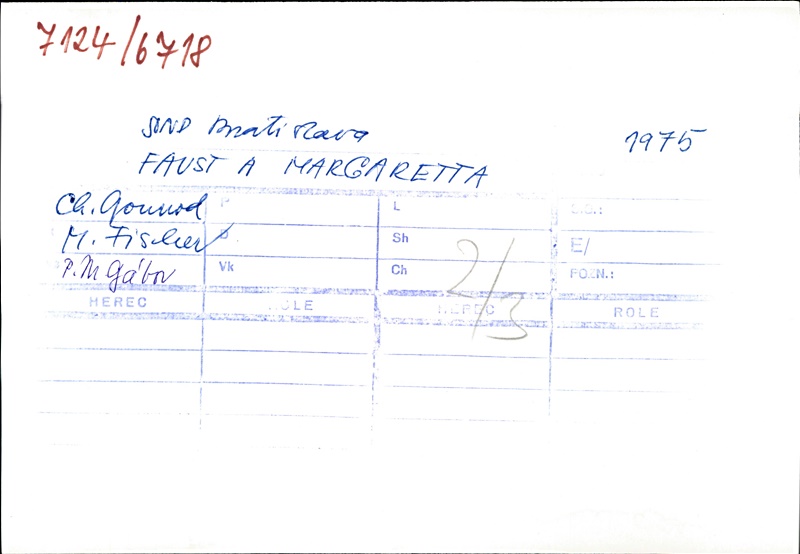 7124/6718
SND Bratislava 1975
FAUST A MARGARETTA
Ch. Gounod P L
M. Fischer Sh E/
P. M. Gábor Vk Ch FO.N.:
2/3
HEREC ROLE HEREC ROLE